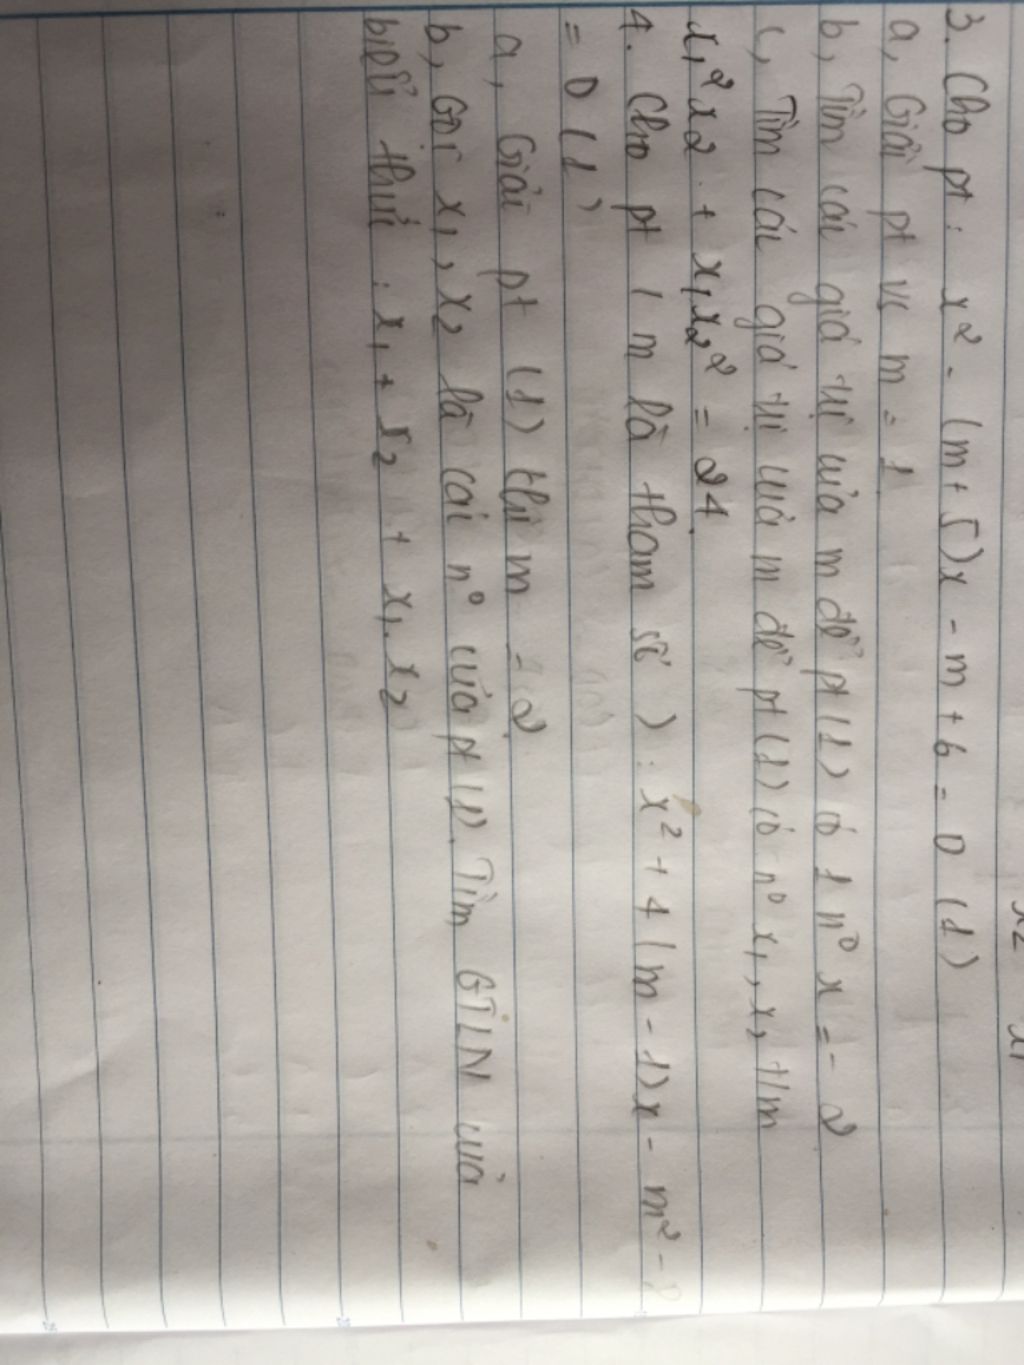 x2 x1
3. Cho pt : x² - (m+5)x - m + 6 = 0 (1)
a, Giải pt vs m = 1
b, Tìm các giá trị của m để pt (1) có 1 n⁰ x = - 2
c, Tìm các giá trị của m để pt (1) có n⁰ x₁, x₂ t/m
x₁²x2 + x₁x₂² = 24.
4. Cho pt ( m là tham số ) : x² + 4(m - 1)x - m² - 8
= 0 (1)
a, Giải pt (1) khi m = 2
b, Gọi x₁, x2 là các n⁰ của pt (1). Tìm GTLN của
biểu thức : x₁ + x₂ + x₁.x₂